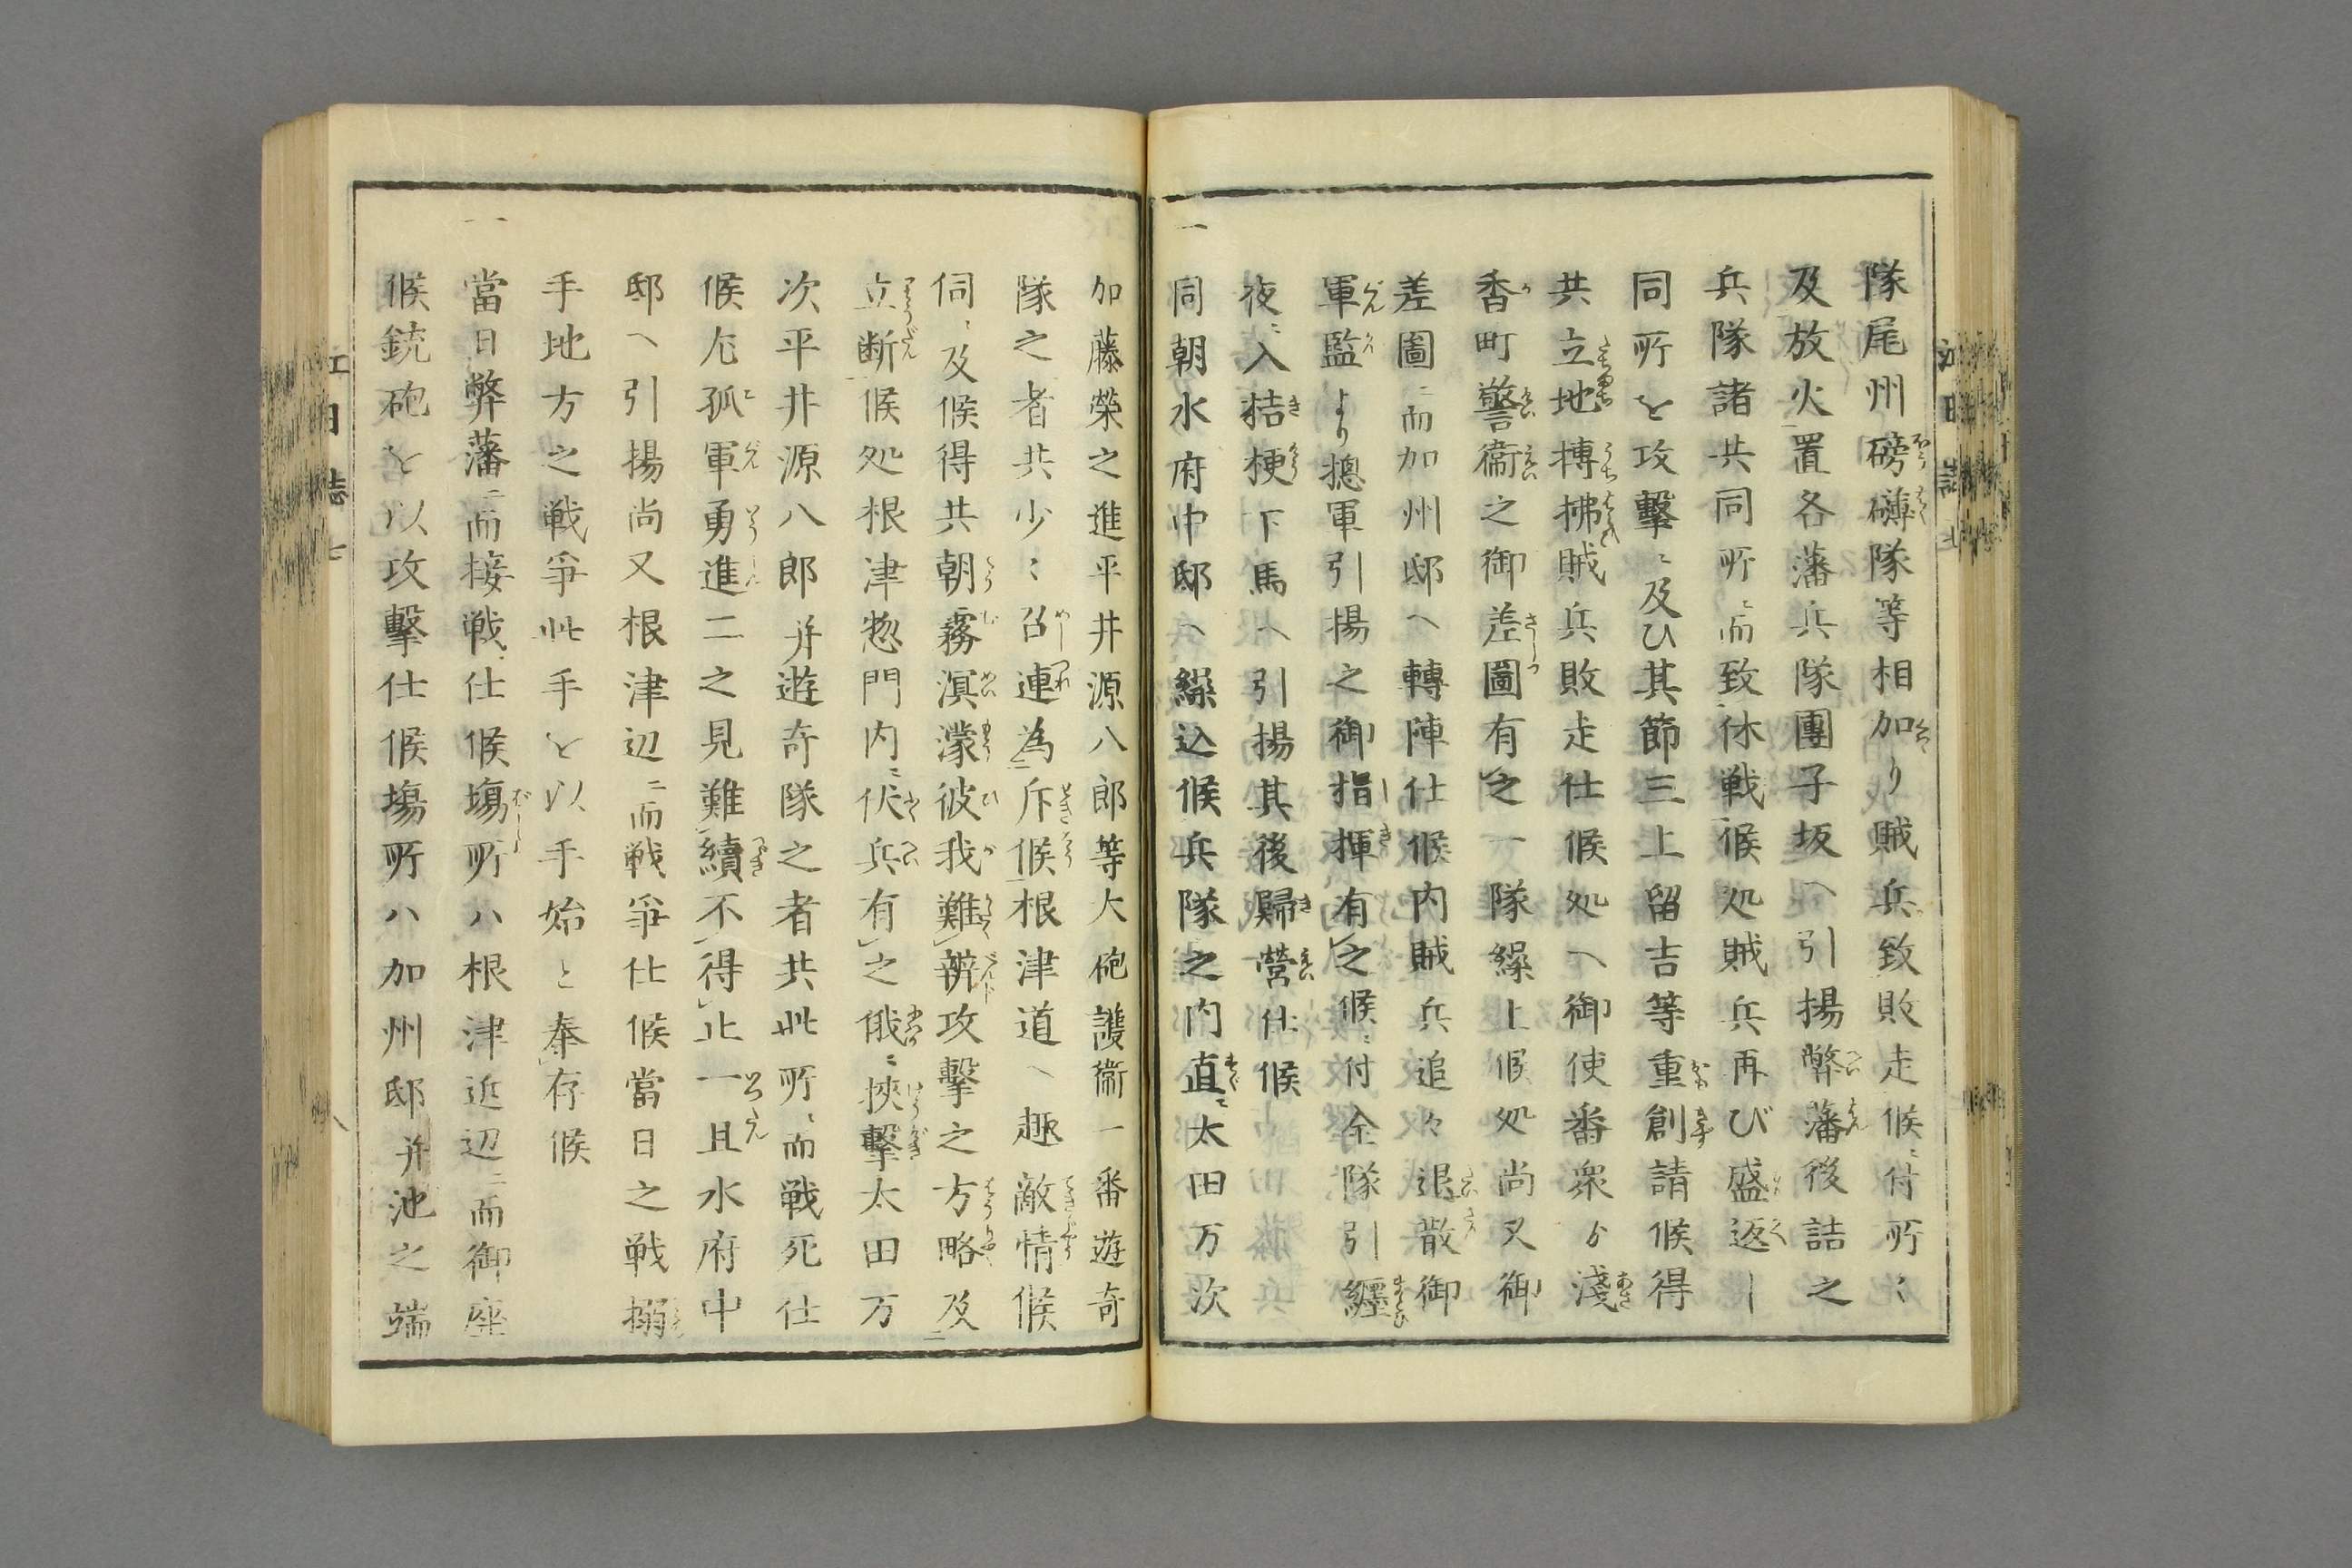 隊尾州磅礴隊等相加り賊兵致敗走候ニ付所ミ
及放火置各藩兵隊團子坂ヘ引揚弊藩後詰之
兵隊諸共同所ニ而致休戦候処賊兵再び盛返し
同所を攻撃ニ及ひ其節三上留吉等重創請候得
共立地摶拂賊兵敗走仕候処ヘ御使番衆ゟ淺
香町警衞之御差圖有之一隊繰上候処尚又御
差圖ニ而加州邸ヘ轉陣仕候内賊兵追々退散御
軍監より摠軍引揚之御指揮有之候ニ付全隊引纏
夜ニ入桔梗下馬ヘ引揚其後歸營仕候
一同朝水府中邸ヘ繰込候兵隊之内直ニ太田万次
加藤榮之進平井源八郎等大砲護衞一番遊奇
隊之者共少ミ召連為斥候根津道ヘ趣敵情候
伺ニ及候得共朝霧溟濛彼我難辨攻撃之方略及
立断候処根津惣門内ニ伏兵有之俄ニ挾撃太田万
次平井源八郎并遊奇隊之者共此所ニ而戦死仕
候尤孤軍勇進二之見難續不得止一且水府中
邸ヘ引揚尚又根津辺ニ而戦爭仕候當日之戦搦
手地方之戦爭此手を以手始と奉存候
一當日弊藩ニ而接戦仕候塲所ハ根津近辺ニ而御座
候銃砲を以攻撃仕候塲所ハ加州邸并池之端
江日誌七